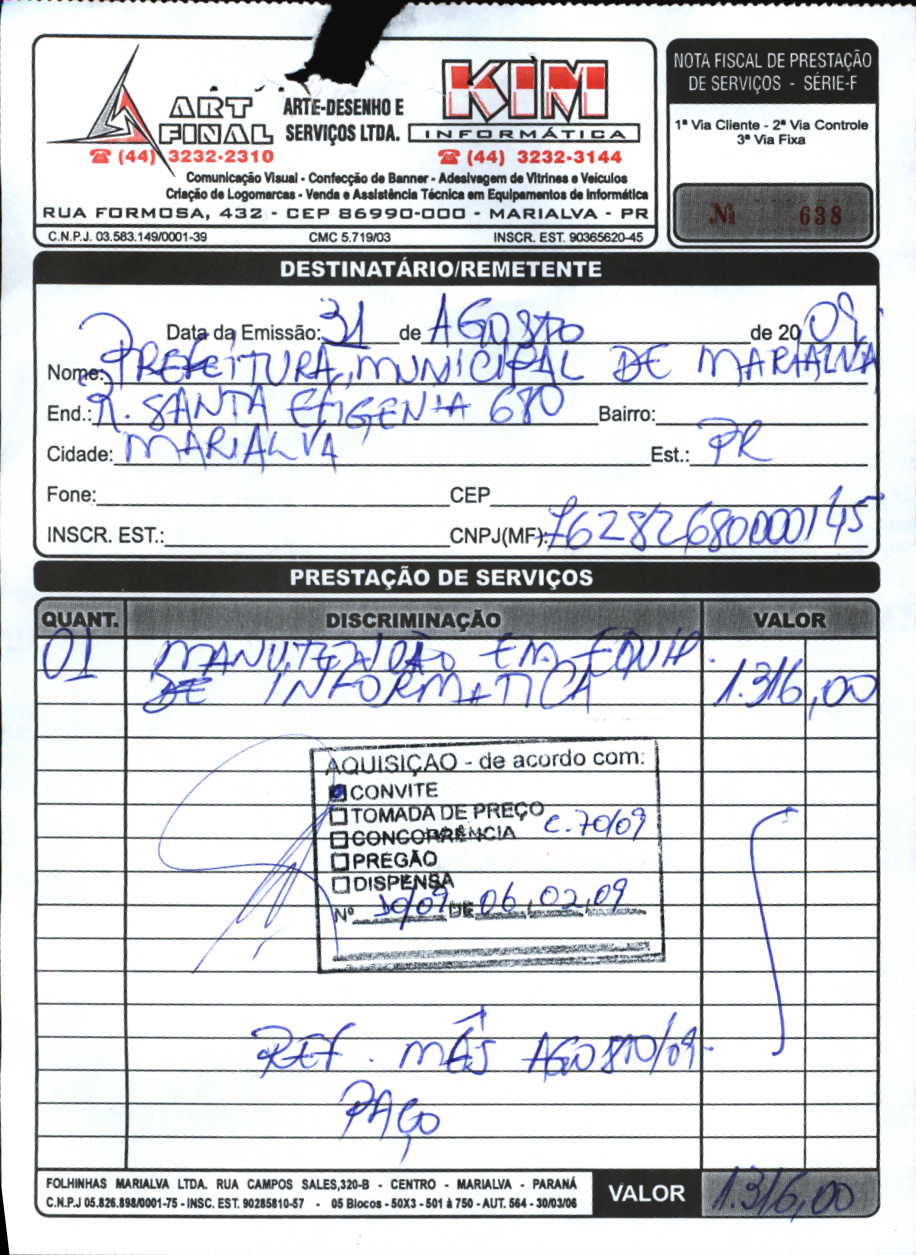 ART FINAL
ARTE-DESENHO E SERVIÇOS LTDA.
KIM INFORMÁTICA
(44) 3232-2310
(44) 3232-3144
Comunicação Visual - Confecção de Banner - Adesivagem de Vitrines e Veículos
Criação de Logomarcas - Venda e Assistência Técnica em Equipamentos de Informática
RUA FORMOSA, 432 - CEP 86990-000 - MARIALVA - PR
C.N.P.J. 03.583.149/0001-39 CMC 5.719/03 INSCR. EST. 90365620-45
NOTA FISCAL DE PRESTAÇÃO
DE SERVIÇOS - SÉRIE-F
1ª Via Cliente - 2ª Via Controle
3ª Via Fixa
638
DESTINATÁRIO/REMETENTE
Data da Emissão: 31 de AGOSTO de 2009
Nome: PREFEITURA MUNICIPAL DE MARIALVA
End.: R. SANTA EFIGENIA 680 Bairro:
Cidade: MARIALVA Est.: PR
Fone: CEP
INSCR. EST.: CNPJ(MF): 76282680000145
PRESTAÇÃO DE SERVIÇOS
QUANT. DISCRIMINAÇÃO VALOR
01 MANUTENÇÃO EM EQUIP.
DE INFORMATICA 1.316,00
AQUISIÇÃO - de acordo com:
CONVITE
TOMADA DE PREÇO
CONCORRÊNCIA C.70/09
PREGÃO
DISPENSA
Nº 10/09 DE 06,02,09
REF. MÊS AGOSTO/09
PAGO
FOLHINHAS MARIALVA LTDA. RUA CAMPOS SALES,320-B - CENTRO - MARIALVA - PARANÁ
C.N.P.J 05.826.898/0001-75 - INSC. EST. 90285810-57 - 05 Blocos - 50X3 - 501 à 750 - AUT. 564 - 30/03/06
VALOR 1.316,00